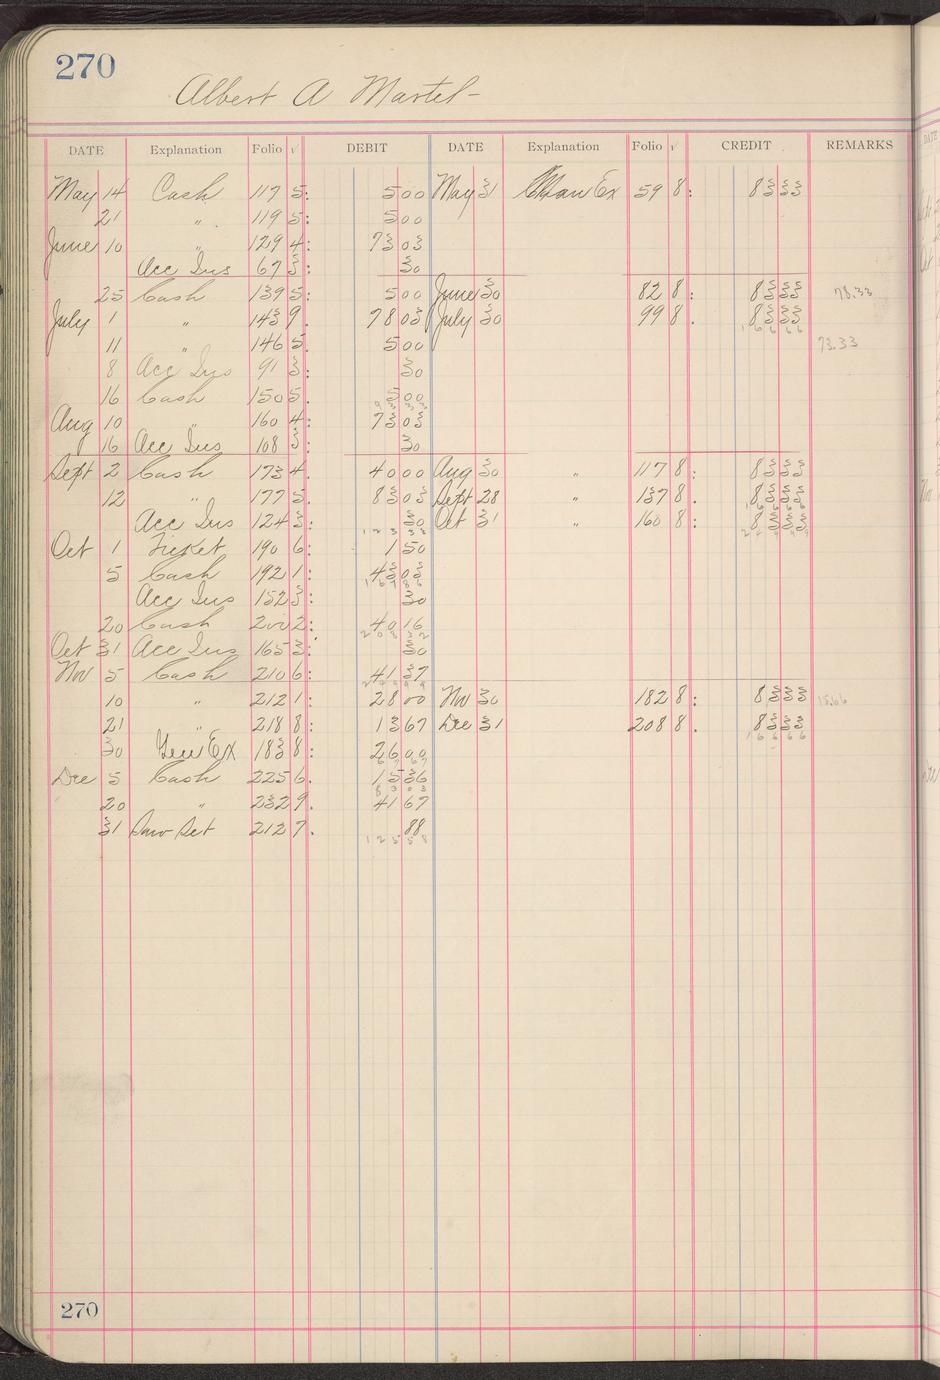 270
Albert A Martel -
DATE Explanation Folio √ DEBIT DATE Explanation Folio √ CREDIT REMARKS
May 14 Cash 117 5: 5 00 May 31 Man Ex 59 8: 83 33
21 " 119 5: 5 00
June 10 " 129 4: 73 03
Acc Ins 67 3: 30
25 Cash 139 5: 5 00 June 30 82 8: 83 33 78.33
July 1 " 143 9. 78 03 July 30 99 8. 83 33
1 6 6 6 6
11 " 146 5. 5 00 73.33
8 Acc Ins 91 3: 30
16 Cash 150 5. 5 00
9 3 3 3
Aug 10 160 4: 73 03
16 Acc Ins 108 3: 30
Sept 2 Cash 173 4. 40 00 Aug 30 " 117 8: 83 33
12 " 177 5. 83 03 Sept 28 " 137 8. 83 33
Acc Ins 124 3: 30 Oct 31 " 160 8: 83 33
1 2 3 3 3 2 4 9 9 9
Oct 1 Ticket 190 6: 1 50
5 Cash 192 1: 43 03
1 6 7 8 6
Acc Ins 152 3: 30
20 Cash 200 2: 40 16
2 0 8 3 2
Oct 31 Acc Ins 165 3: 30
Nov 5 Cash 210 6: 41 37
2 4 9 9 9
10 " 212 1: 28 00 Nov 30 182 8: 83 33 15.66
21 " 218 8: 13 67 Dec 31 208 8. 83 33
1 6 6 6 6
30 Gen Ex 183 8: 26 00
6 7 6 7
Dec 5 Cash 225 6. 15 36
8 3 0 3
20 " 232 9. 41 67
31 212 7. 88
1 2 5 5 8
270